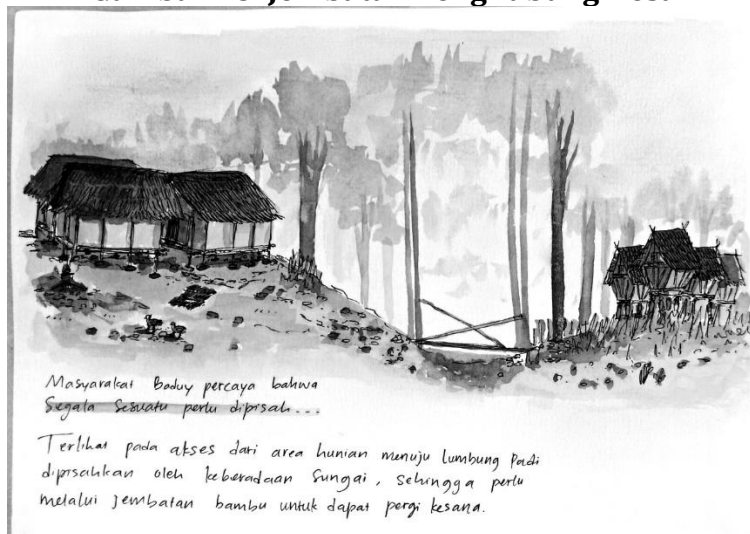 Masyarakat Baduy percaya bahwa
Segala Sesuatu perlu dipisah...
Terlihat pada akses dari area hunian menuju Lumbung Padi
dipisahkan oleh keberadaan Sungai, sehingga perlu
melalui jembatan bambu untuk dapat pergi kesana.